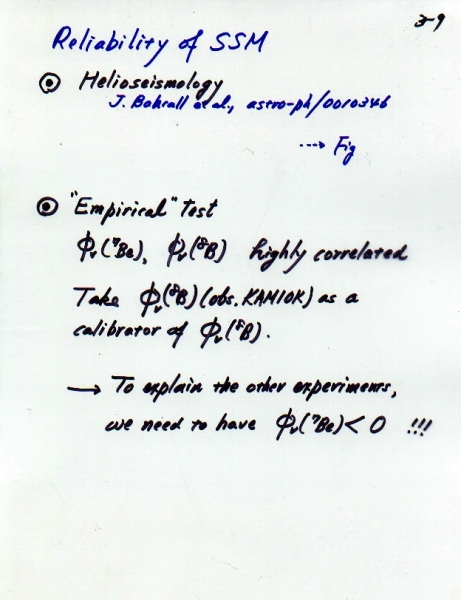 3-9
Reliability of SSM
◉ Helioseismology
J. Bahcall et al., astro-ph/0010346
---> Fig
◉ "Empirical" Test
ϕν(⁷Be), ϕν(⁸B) highly correlated
Take ϕν(⁸B) (obs. KAMIOK) as a
calibrator of ϕν(⁸B).
→ To explain the other experiments,
we need to have ϕν(⁷Be) < 0 !!!